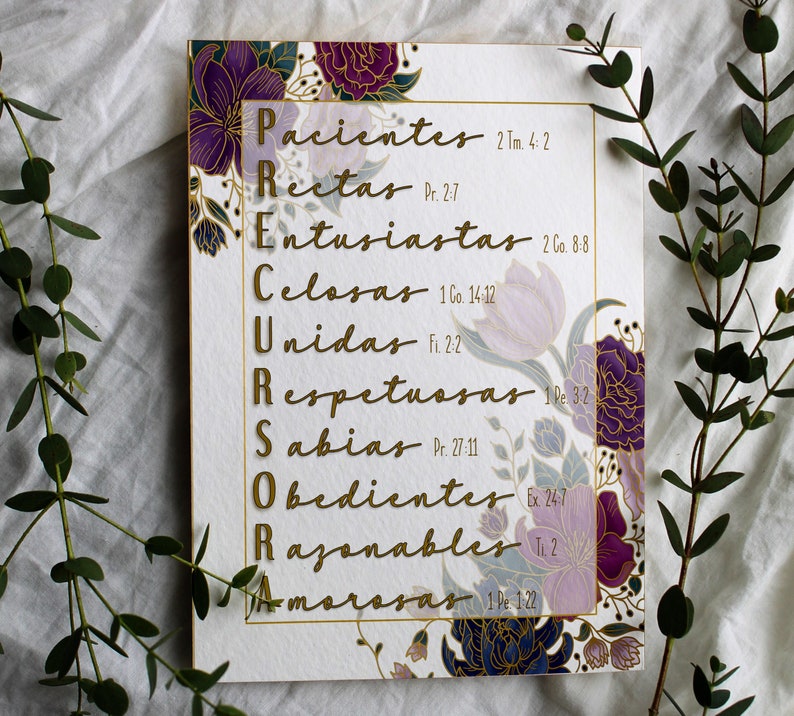 Pacientes 2 Tm. 4: 2
Rectas Pr. 2:7
Entusiastas 2 Co. 8:8
Celosas 1 Co. 14:12
Unidas Fi. 2:2
Respetuosas 1 Pe. 3:2
Sabias Pr. 27:11
Obedientes Ex. 24:7
Razonables Ti. 2
Amorosas 1 Pe. 1:22